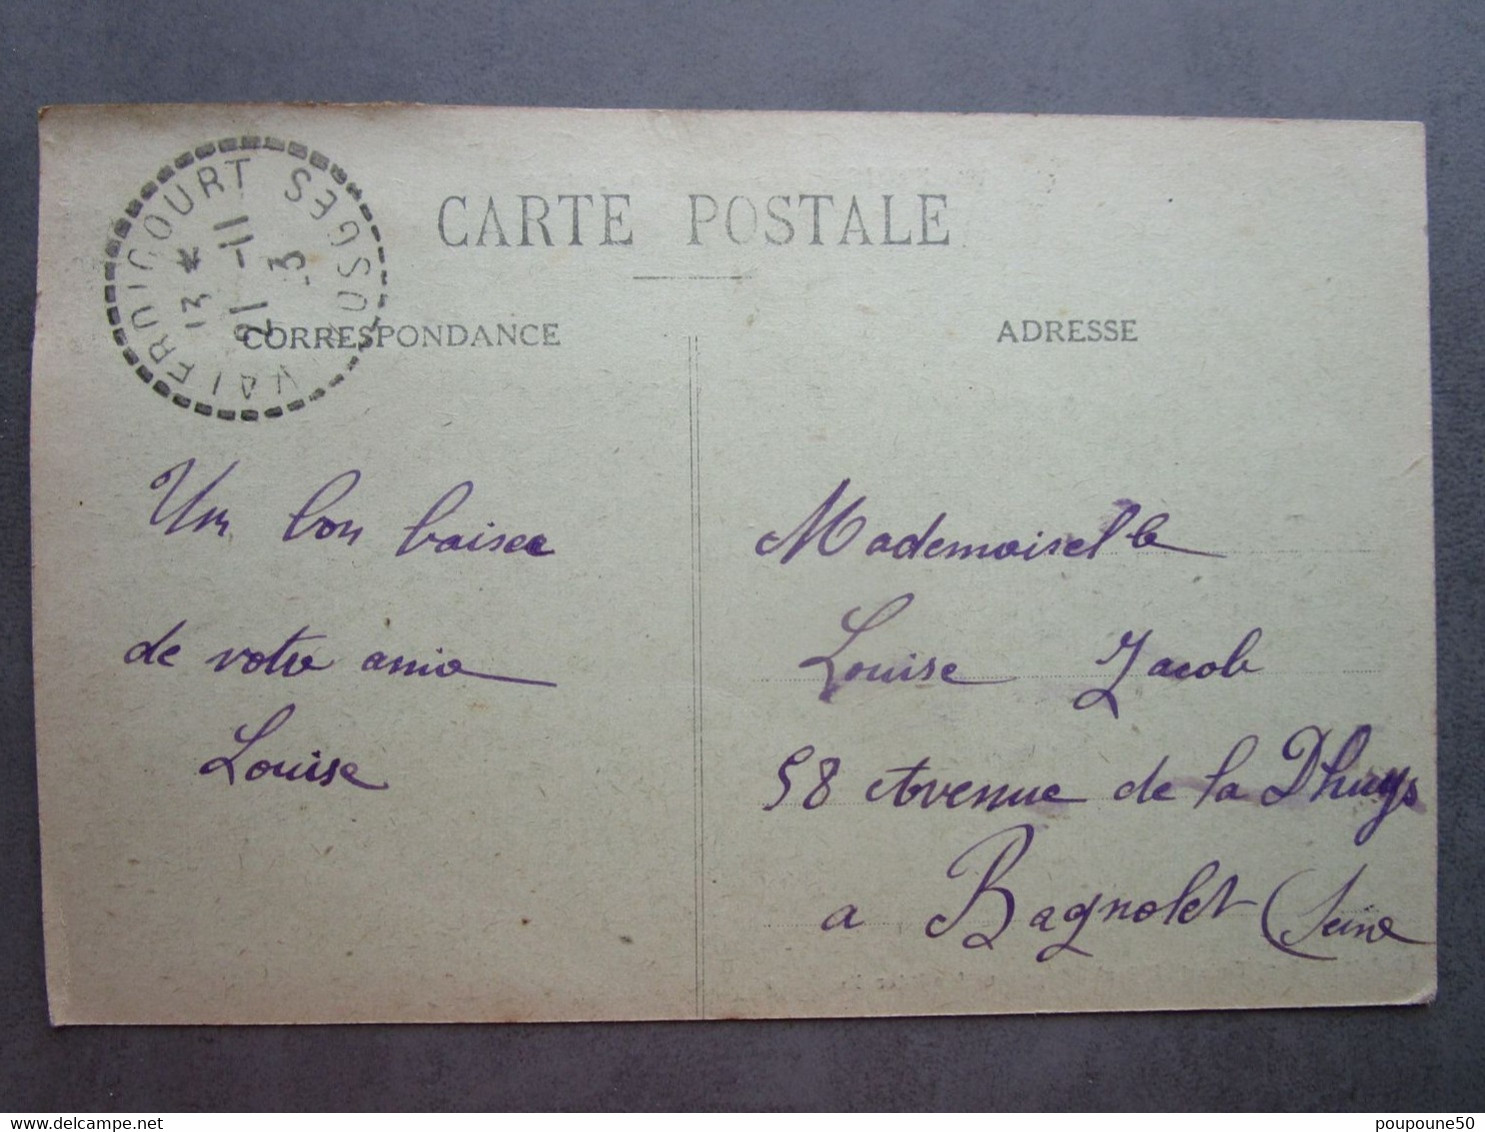 VALFROICOURT VOSGES
13 *
21 -11
3
CARTE POSTALE
CORRESPONDANCE
ADRESSE
Un bon baiser
de votre amie
Louise
Mademoiselle
Louise Jacob
58 Avenue de la Dhuys
a Bagnolet (Seine
poupoune50